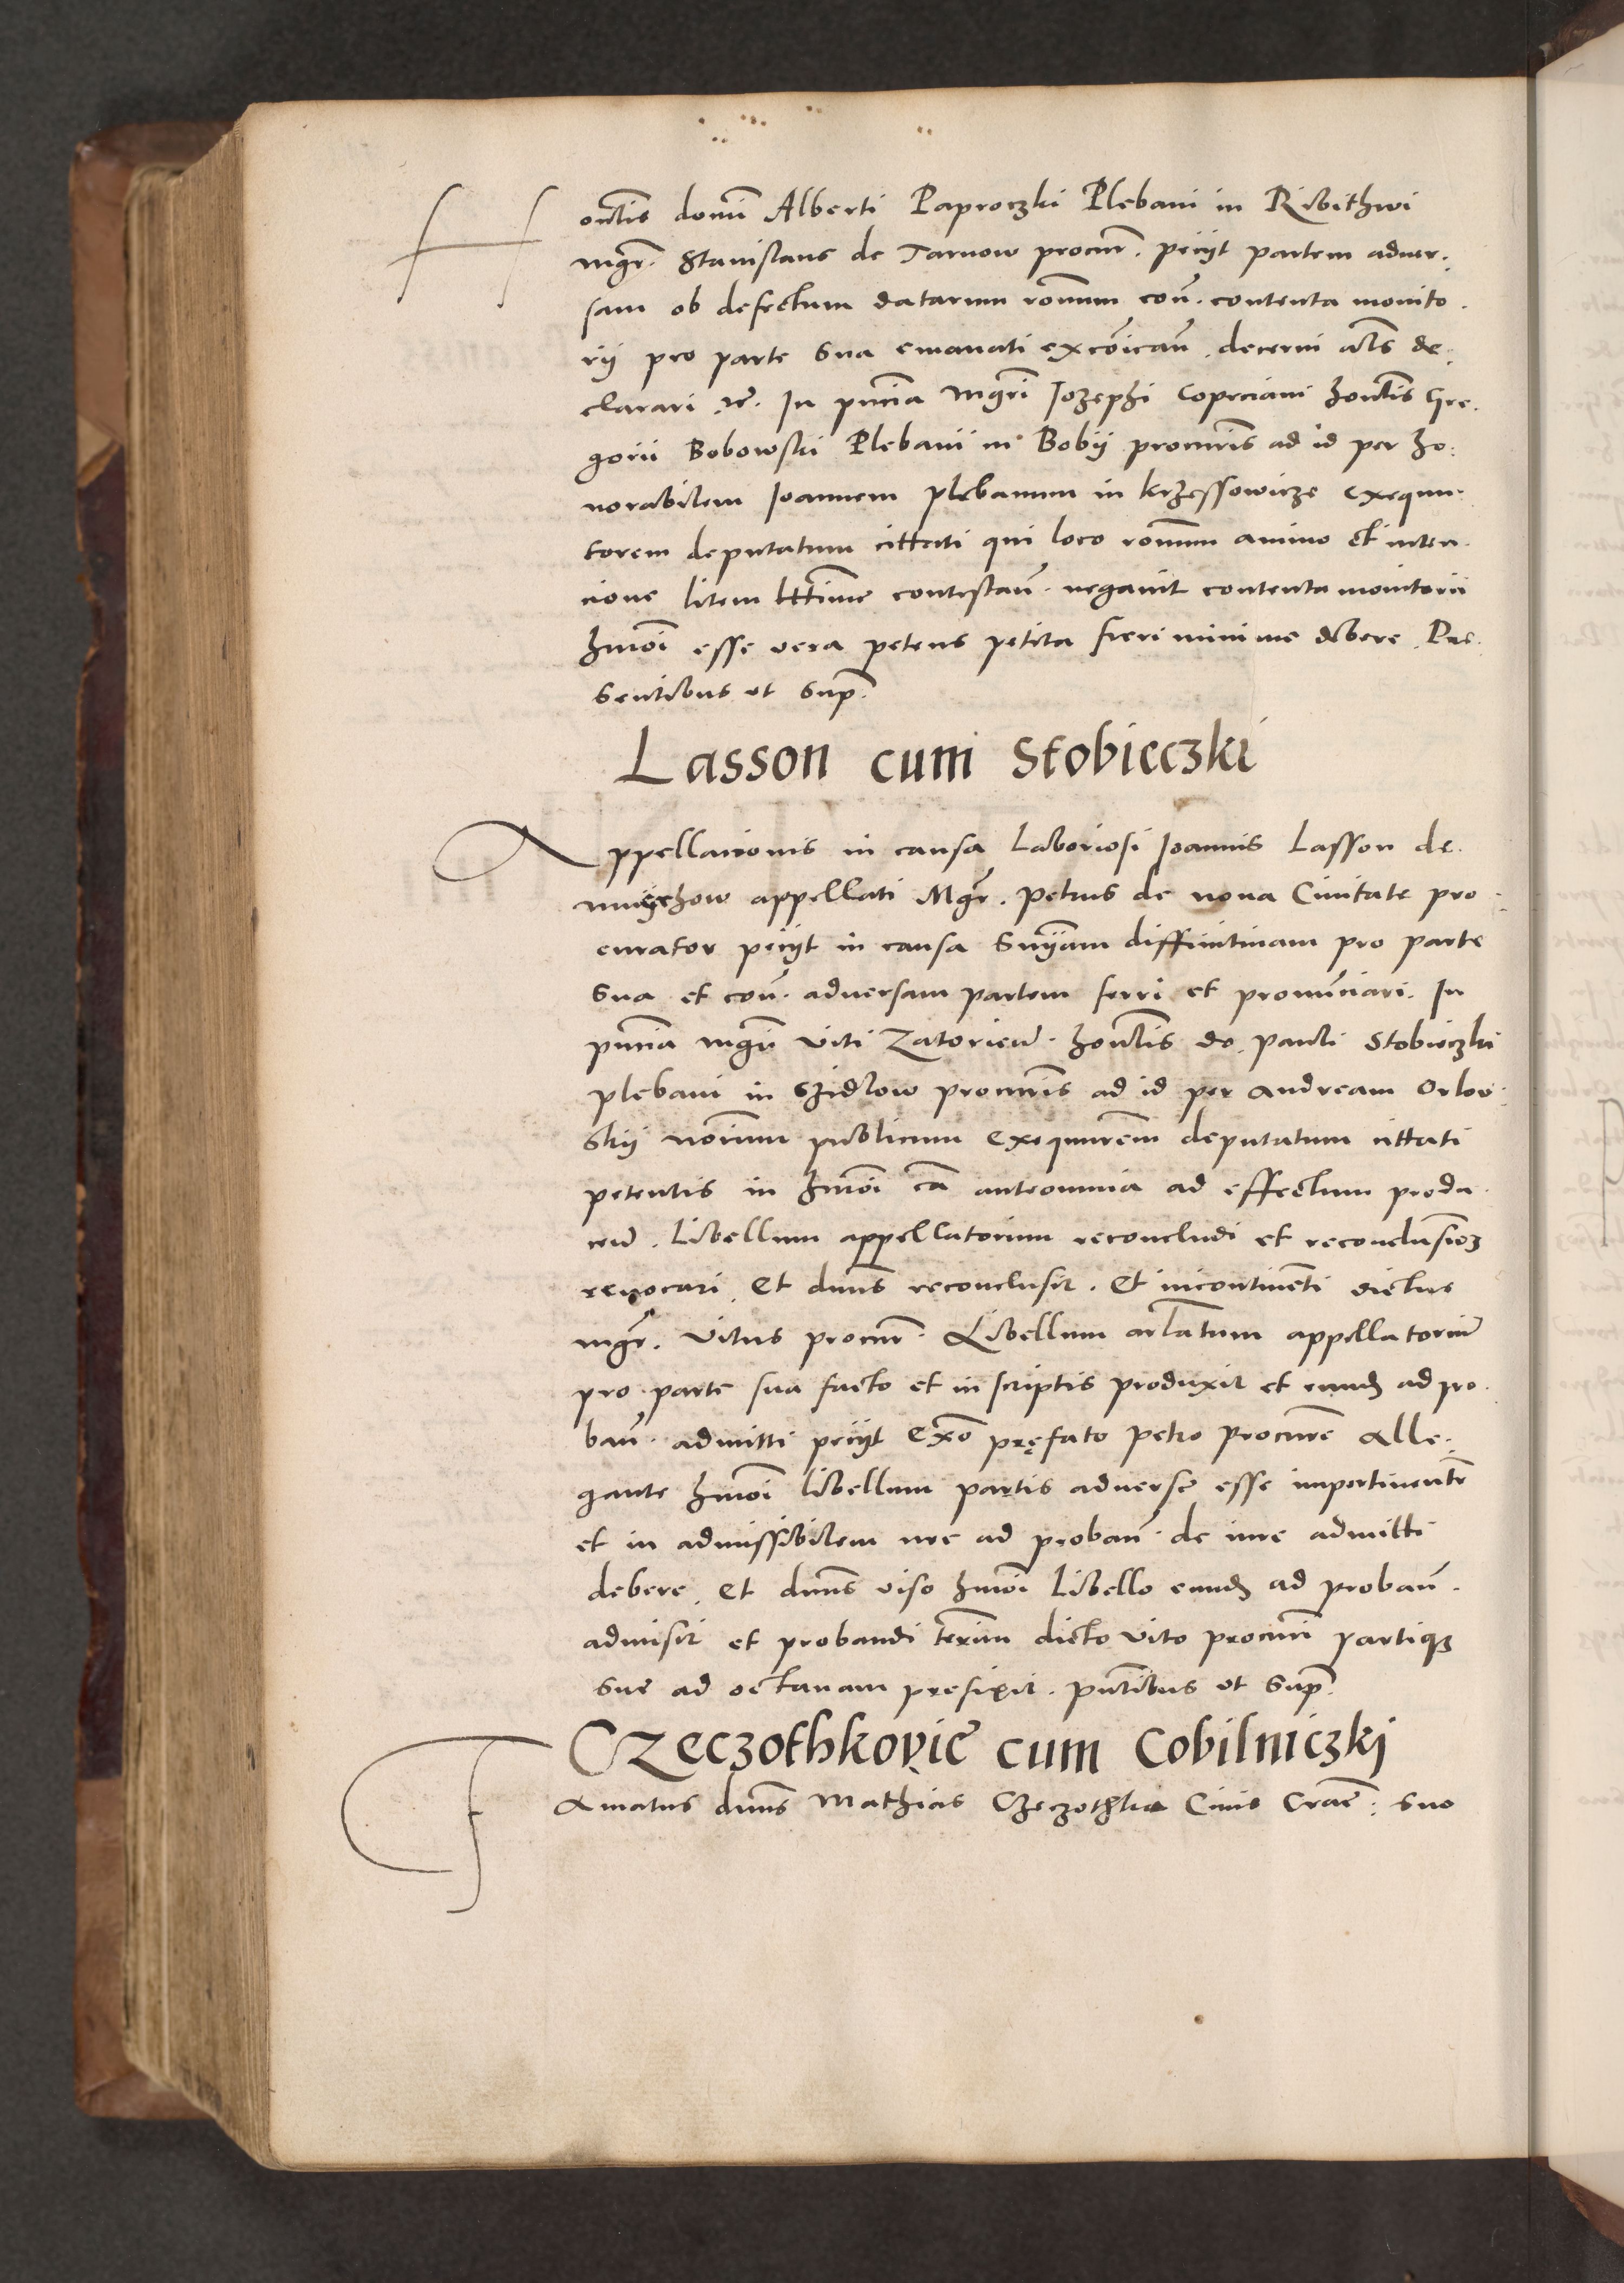 Honlis domi Alberti Paproczki Plebani in Ribithwi
mgr. Stanislaus de Tarnow procur. peciit partem aduer.
sam ob defectum datarum ronum con. contenta monito.
rij pro parte sua emanati excoican. decerni als de.
clarari rc. In pncia mgri Jozephi Copeciani honlis Gre.
gorii Bobowski Plebani in Bobij procuris ad id per ho:
norabilem Joannem plebanum in krzessowicze exequu.
torem deputatum cittati qui loco ronum animo et inten.
cione litem lttime contestan. negauit contenta monitorii
hmoi esse vera petens petita fieri minime debere. Pre.
sentibus ut sup.
Lasson cum Stobieczki
Appellacionis in causa Laboriosi Joannis Lasson de.
appellati Mgr. Petrus de noua Ciuitate pro.
curator peciit in causa sniam diffinitiuam pro parte
sua et con. aduersam partem ferri et pronunciari. In
pncia mgri Viti Zatorien. honlis do. Pauli Stobieczki
plebani in Szidlow procuris ad id per Andream Orlow.
skij norium publicum exequurem deputatum cittati
petentis in hmoi ca anteomnia ad effectum produ.
cen. Libellum appellatorium reconcludi et reconclusioz
reuocari. Et duns reconclusit. Et incontinenti dictus
mgr. Vitus procur. Libellum arlatum appellatorium
pro parte sua facto et in scriptis produxit et eundz ad pro.
ban. admitti peciit Exo prefato Petro Procure Alle.
gante hmoi libellum partis aduerse esse impertinente
et in admissibilem nec ad proban. de iure admitti
debere. Et duns viso hmoi Libello eundz ad proban.
admisit et probandi terium dicto Vito procuri partiqz
sue ad octauam prefixit. pntibus ut sup.
Czeczothkovic cum Cobilniczki
Famatus duns Mathias Czeczothka Ciuis Crac: suo